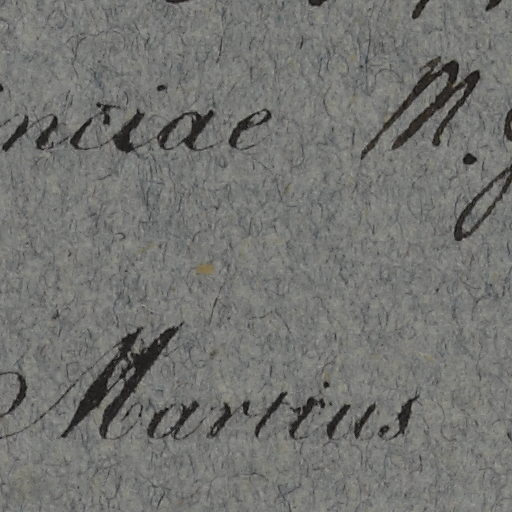 inciae M.
Martius